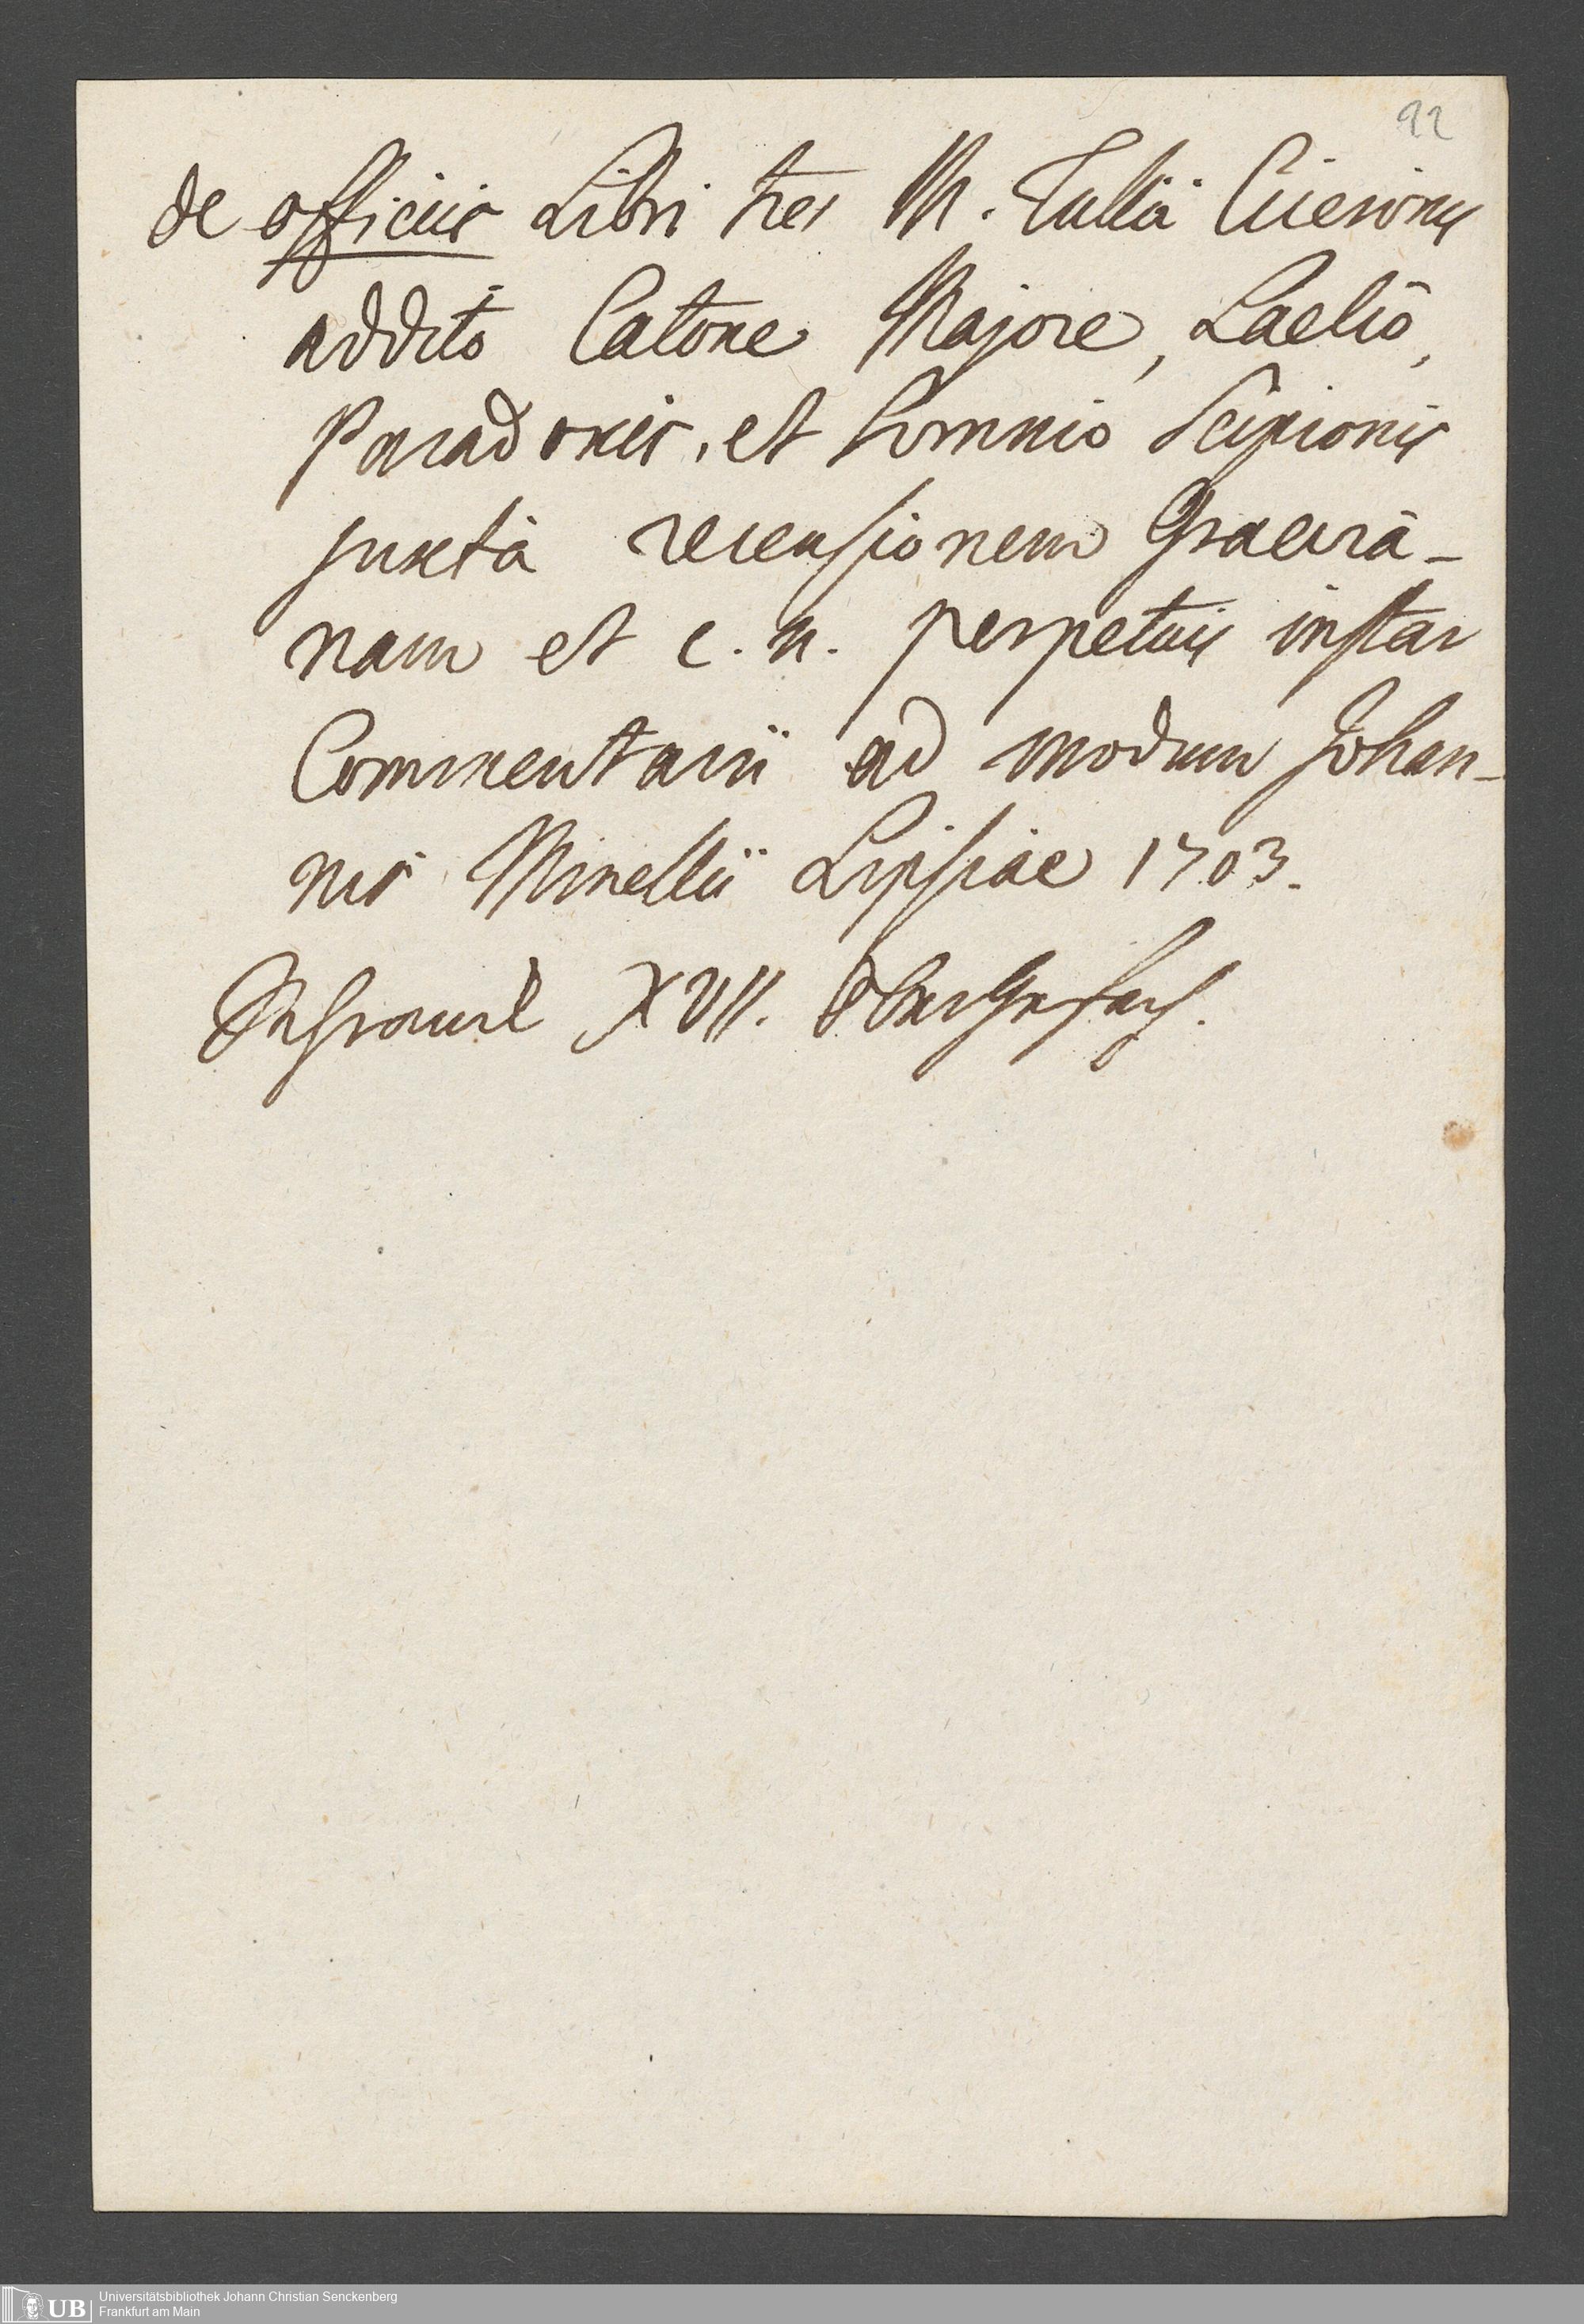 92
de officiis Libri tres M. Tullii Ciceronis
addito Catone Majore, Laelio,
Paradoxis, et Somnio Scipionis
juxta recensionem Graevia-
nam et c. n. perpetuis instar
Commentarii ad modum Johan-
nis Minellii Lipsiae 1703.
Schranck XVII. Obergefach.
UB Universitätsbibliothek Johann Christian Senckenberg
Frankfurt am Main